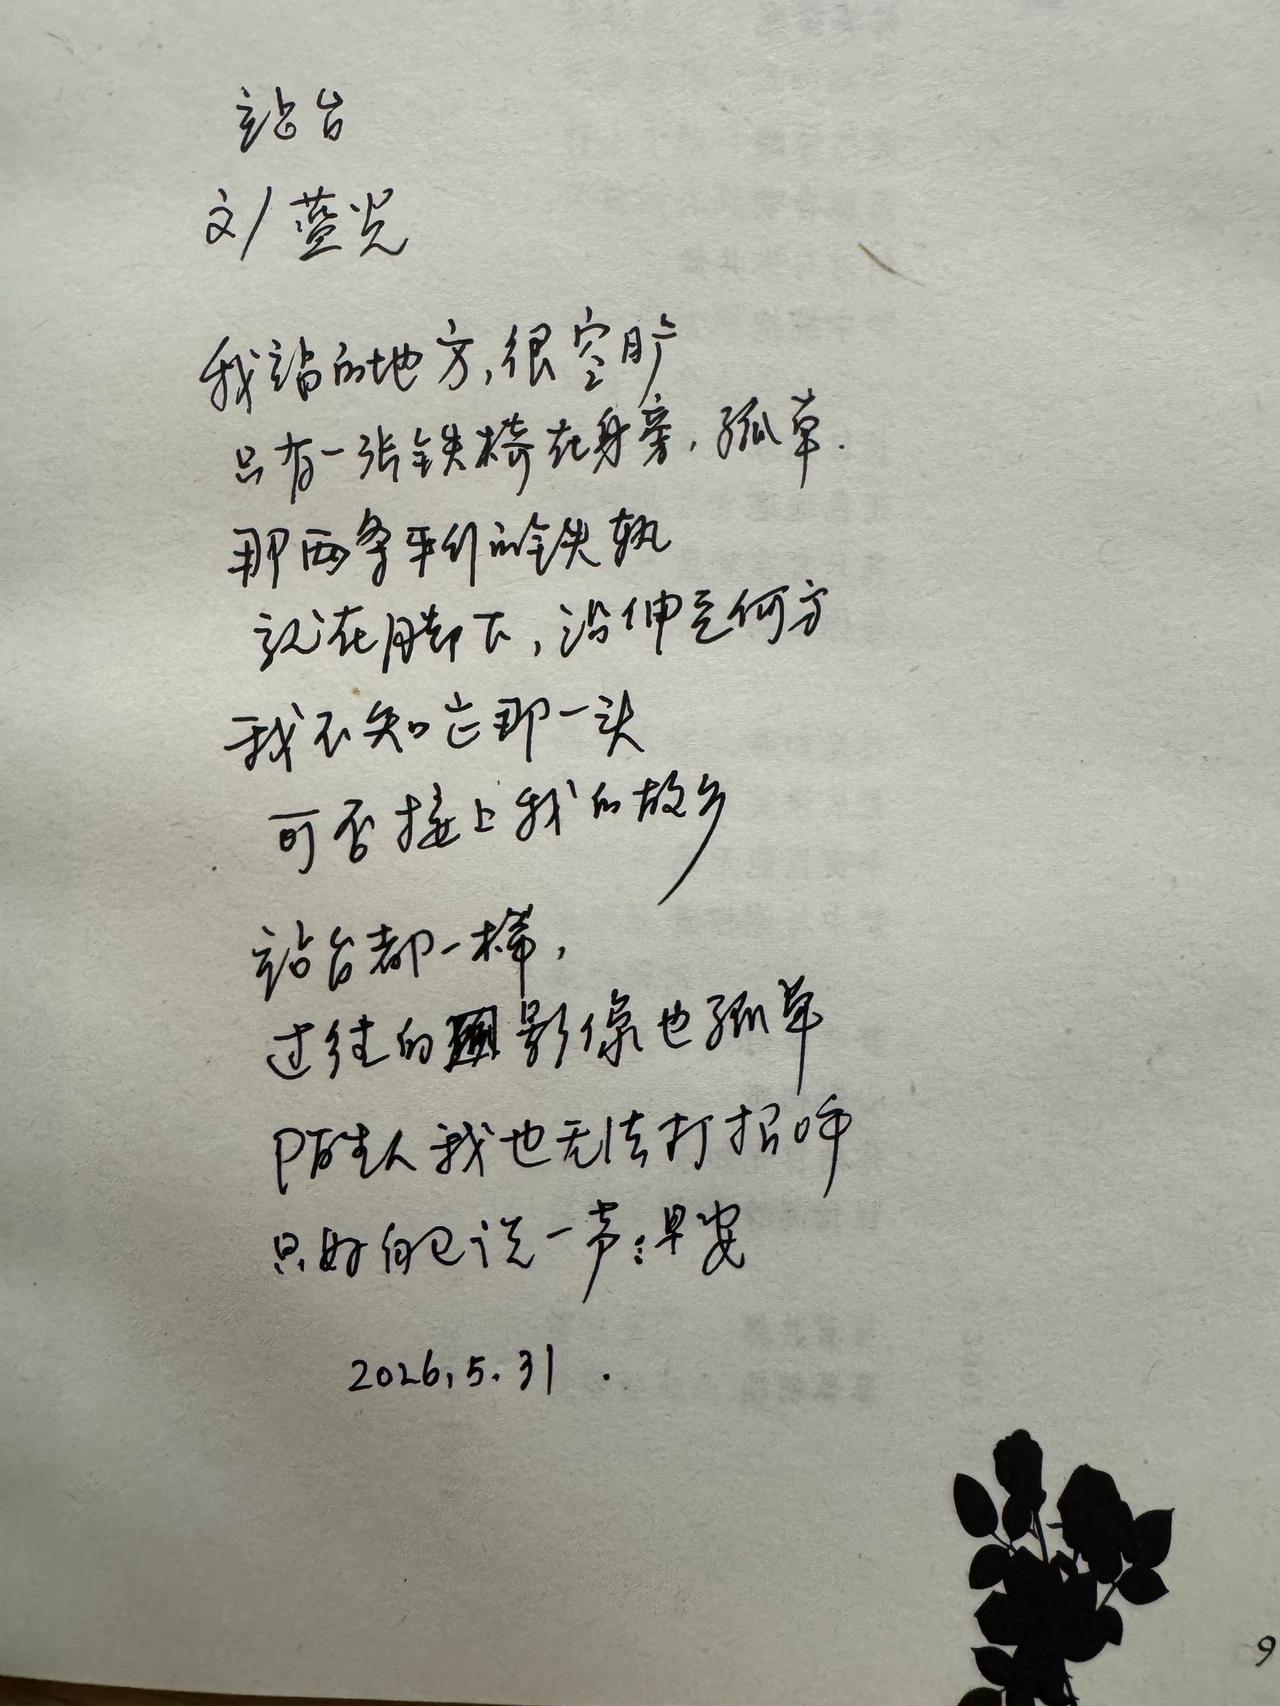 站台
文/蓝光
我站的地方,很空旷
只有一张铁椅在身旁,孤单.
那两条平行的铁轨
就在脚下,沿伸至何方
我不知它那一头
可否接上我的故乡
站台都一样,
过往的影像也孤单
陌生人我也无法打招呼
只好自己说一声:早安
2026.5.31.
9